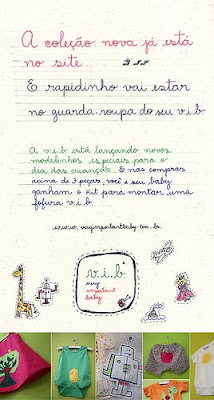 A coleção nova já está
no site.
E rapidinho vai estar
no guarda-roupa do seu v.i.b
A v.i.b está lançando novos
modelinhos especiais para o
dia das crianças. E nas compras
acima de 3 peças, você e seu baby
ganham o kit para montar uma
fofura v.i.b.
www.veryimportantbaby.com.br
v.i.b
very
important
baby